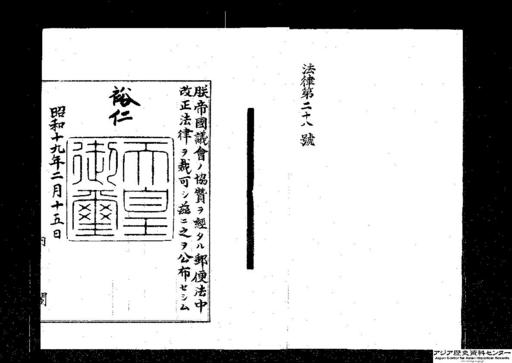 法律第二十八號
朕帝國議會ノ協賛ヲ經タル郵便法中
改正法律ヲ裁可シ茲ニ之ヲ公布セシム
裕仁
天皇
御璽
昭和十九年二月十五日
内閣
アジア歴史資料センター
Japan Center for Asian Historical Records